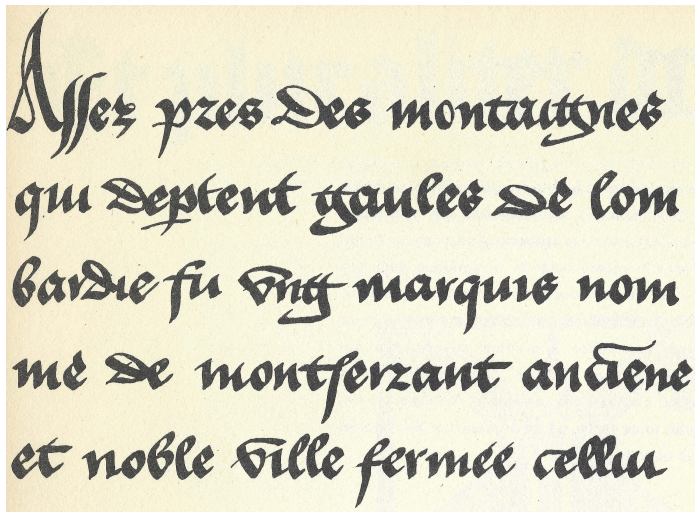 Assez pres des montaitgnes
qui deptent gaules de lom
bardie fu vng marquis nom
me de montferrant anciēne
et noble ville fermee cellui